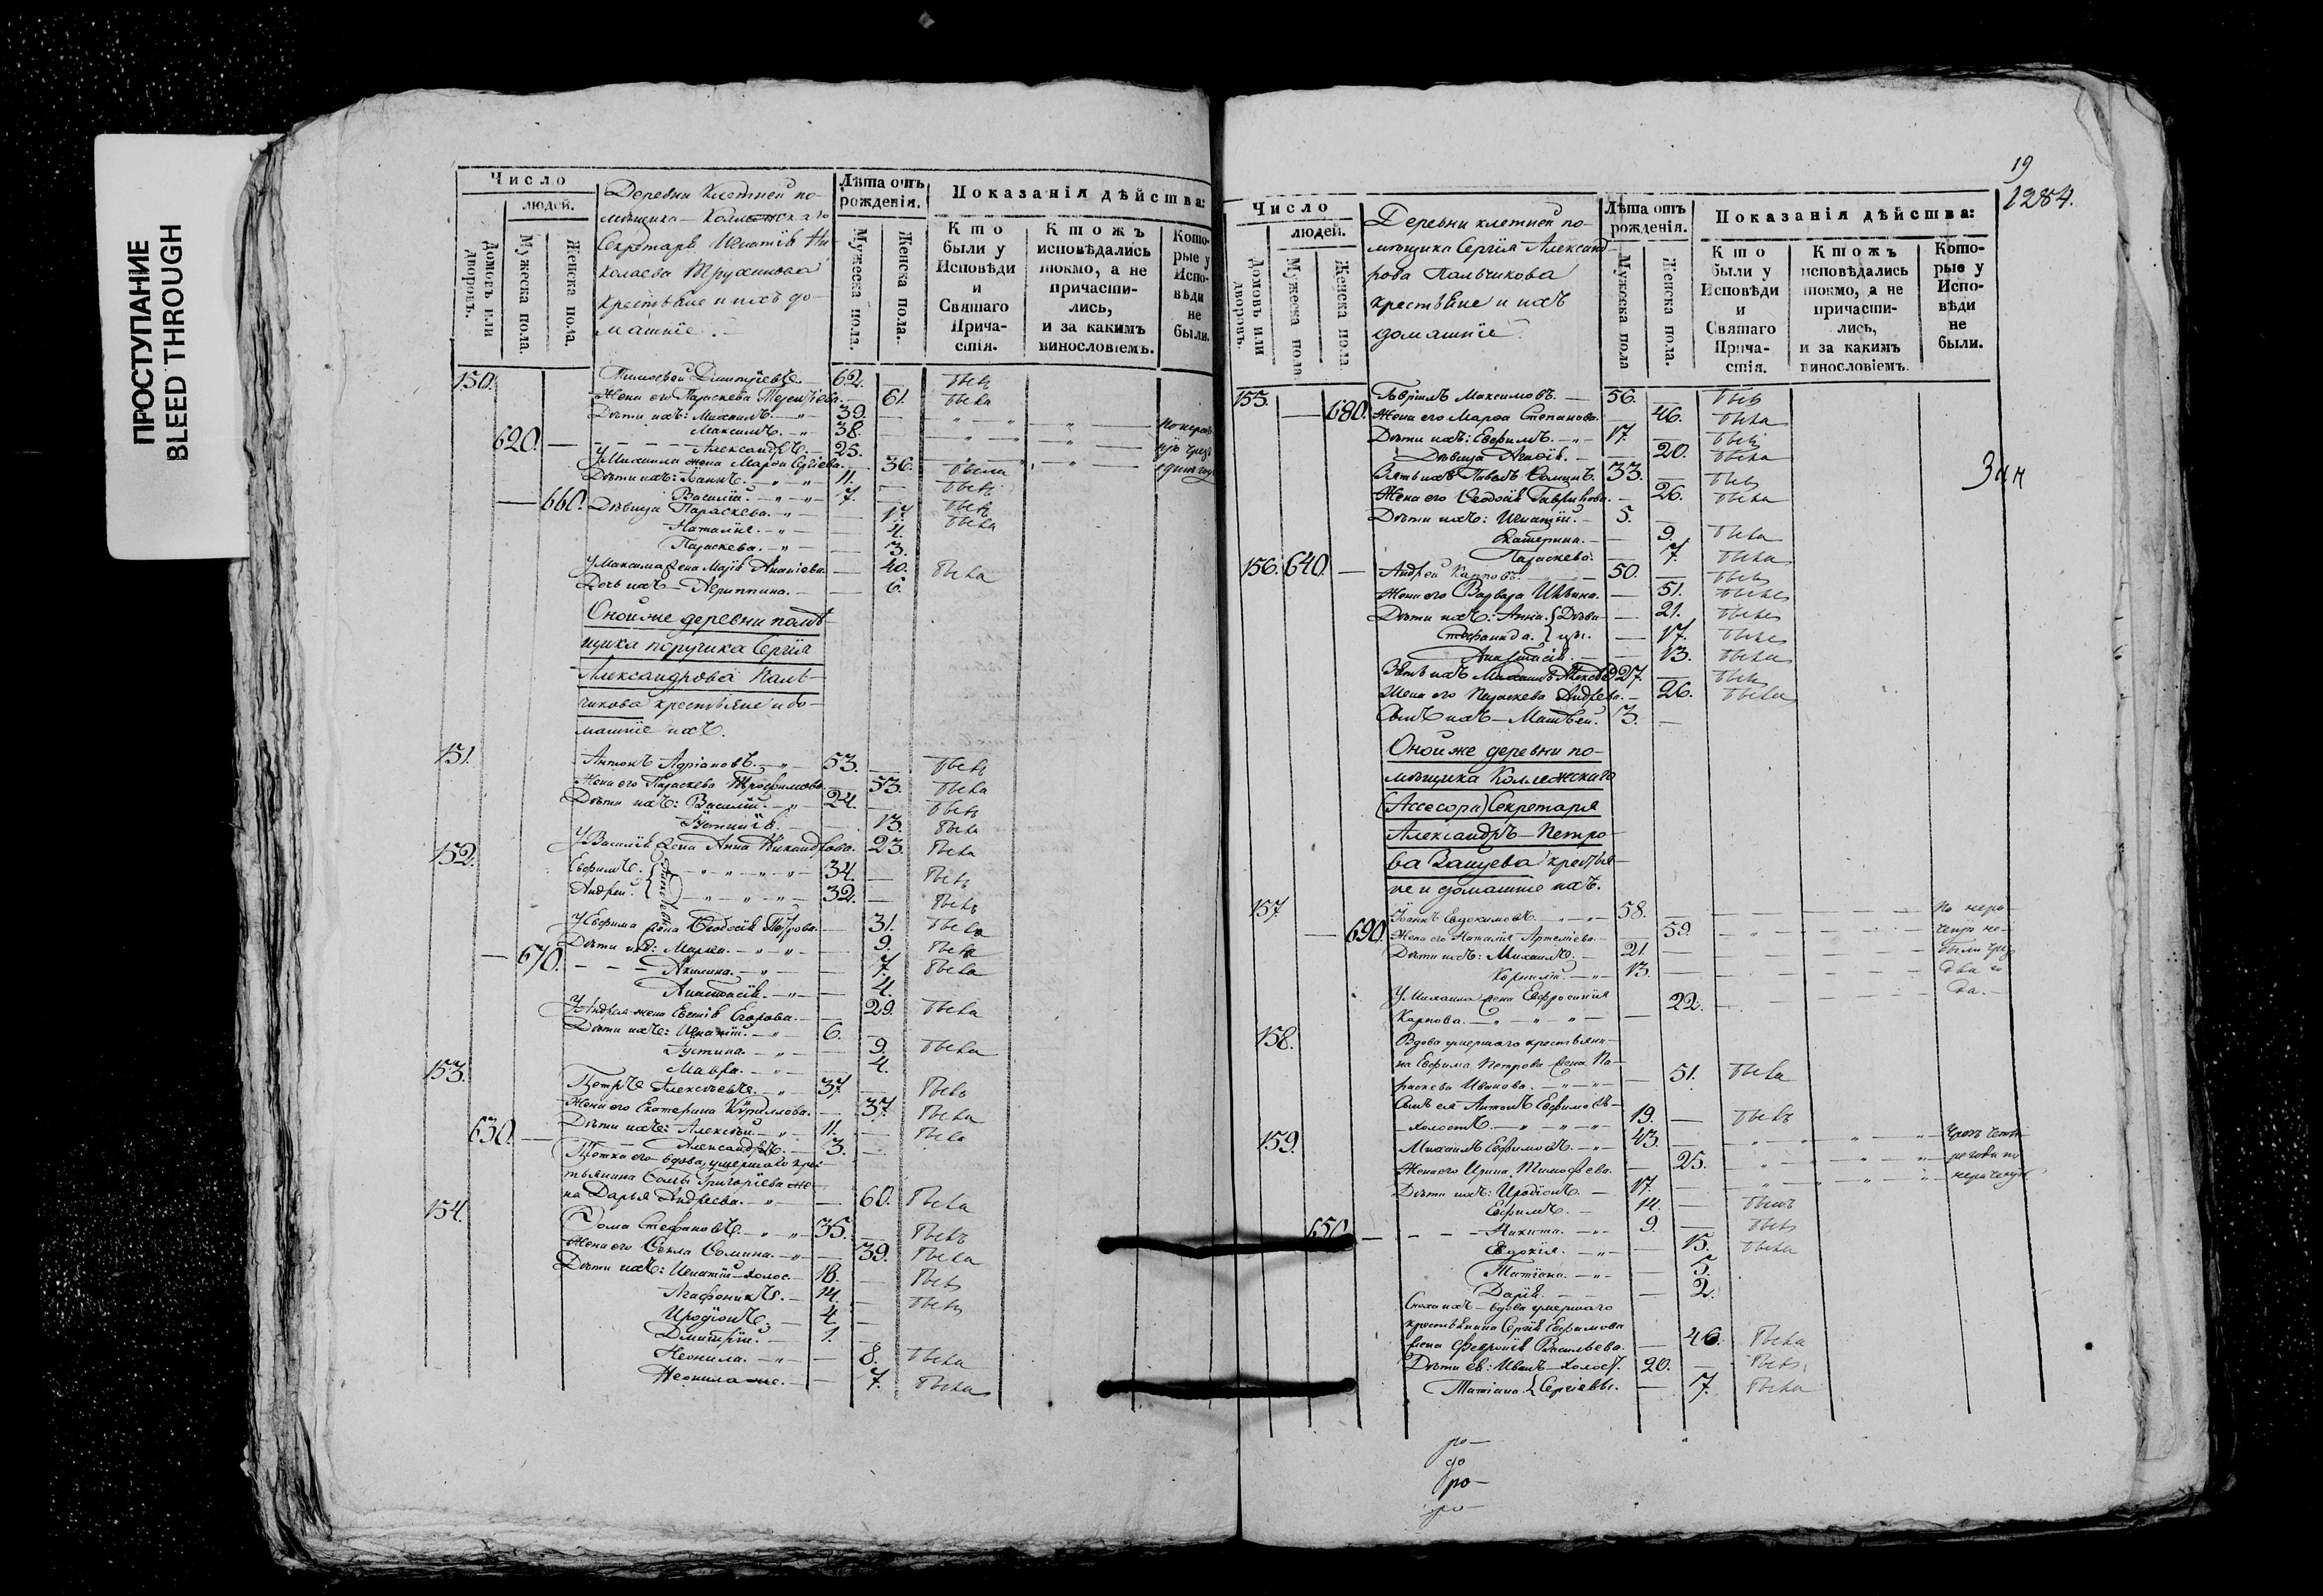 ПРОСТУПАНИЕ
BLEED THROUGH
Число
людей.
Домовъ или дворовъ.
Мужеска пола.
Женска пола.
Деревни Клетней по-
мѣщика Коллежскаго
Секретаря Игнатія Ни-
колаева Трухинова
крестьяне и ихъ до-
машніе.
Лѣта отъ рожденія.
Мужеска пола.
Женска пола.
Показанія дѣйства:
Кто были у Исповѣди и Святаго Причастія.
Ктожъ исповѣдались токмо, а не причастились, и за какимъ винословіемъ.
Которые у Исповѣди не были.
150. Тимофей Дмитріевъ 62. — бывъ
Жена его Параскева — 61. была
Дѣти ихъ: Михаилъ. 39. —
Максимъ. 38.
620. — Александръ. 25.
У Михаила жена Марѳа Сергіева. — 36. была
Дѣти ихъ: Іоаннъ. 11. — бывъ
Василій. 7. бывъ
— 660. Дѣвица Параскева. — 17. была
Наталія. — 4.
Параскева. — 3.
У Максима жена Марія Ананіева. — 40. была
Дочь ихъ — Агриппина. — 6.
Оной же деревни помѣ-
щика поручика Сергія
Александрова Паль-
чикова крестьяне и до-
машніе ихъ.
151. Антонъ Адріановъ. 53. — бывъ
Жена его Параскева Трофимова. 53. была
Дѣти ихъ: Василій. 24. бывъ
13. была
У Василія жена Анна Никандрова. 23. была
152. Евфимъ. 34. — бывъ
Андрей. 32. — бывъ
У Евфима жена Ѳеодосія Петрова. — 31. была
Дѣти ихъ: Марѳа. 9. была
— 670. Акилина. 7. была
Анастасія. — 4.
У Андрея жена Егорова. — 29. была
Дѣти ихъ: Игнатій. 6. —
Іустина. — 9. была
Мавра. — 4.
153. Петръ Алексѣевъ. 37. — бывъ
Жена его Екатерина Кириллова. — 37. была
Дѣти ихъ: Алексѣй. 11. —
630. — Александръ. 3. —
Тетка его вдова умершаго крес-
тьянина Григоріева же-
на Дарья Андреева. — 60. была
154. Ѳома Стефановъ. 35. — бывъ
Жена его Ѳекла Ѳомина. — 39. была
Дѣти ихъ: Игнатій — холос. 18. — бывъ
Агафоникъ. 14. — бывъ
Иродіонъ. 4. —
Дмитрій. 1. —
Неонила. — 8. была
Неонила же. — 7. была
19
1284.
Число
людей.
Домовъ или дворовъ.
Мужеска пола.
Женска пола
Деревни Клетней по-
мѣщика Сергія Александ-
рова Пальчикова
крестьяне и ихъ
домашніе.
Лѣта отъ рожденія.
Мужеска пола
Женска пола.
Показанія дѣйства:
Кто были у Исповѣди и Святаго Причастія.
Ктожъ исповѣдались токмо, а не причастились, и за какимъ винословіемъ.
Которые у Исповѣди не были.
155. Гавріилъ Максимовъ. — 56. — бывъ
— 680. Жена его Марѳа Степанова. 46. была
Дѣти ихъ: Евфимъ. 17. бывъ
Дѣвица — 20. была
Зять ихъ Павелъ Ѳоминъ. 33. — бывъ
Жена его Ѳеодосія Гаврилова. — 26. была
Дѣти ихъ: Игнатій. — 5. —
Екатерина. — 9. была
Параскева. — 7. была
156. 640. — Андрей Карповъ. 50. — бывъ
Жена его Варвара — 51. была
Дѣти ихъ: Анна. Дѣви- — 21. была
Степанида. цы. — 17. была
Анастасія. — 13. была
Зять ихъ 27. — бывъ
Жена его Параскева Андреева. — 26. была
Сынъ ихъ — Матвей. 3. —
Оной же деревни по-
мѣщика Коллежскаго
(Ассесора) Секретаря
Александръ — Петро-
ва крестья-
не и домашніе ихъ.
157. Іоаннъ Евдокимовъ. 58. по нера-
— 690. Жена его Наталія — 59. — ченію не-
Дѣти ихъ: Михаилъ. 21. были чрез
Корнилій. 13. два го-
У Михаила жена Евфросинія да. —
Карпова. — 22.
158. Вдова умершаго крестьяни-
на Евфима Петрова жена Па-
раскева Иванова. — 51. была
Сынъ ея Антонъ Евфимовъ —
холостъ. 19. — бывъ
159. Михаилъ Евфимовъ. 43. —
Жена его Ирина Тимофеева. — 25.
Дѣти ихъ: Иродіонъ. — 17. —
Евфимъ. — 14. — бывъ
650. — Никита. 9. — бывъ
Евдокія. — 15. была
Татіана. — 5.
Дарія. — 2.
Сноха ихъ — вдова умершаго
крестьянина Сергія Евфимова
жена Февронія Васильева. — 46. была
Дѣти ея: Иванъ — холост. 20. — бывъ
Татіана Сергіевы. — 17. была
ро —
до
ро —
ро —